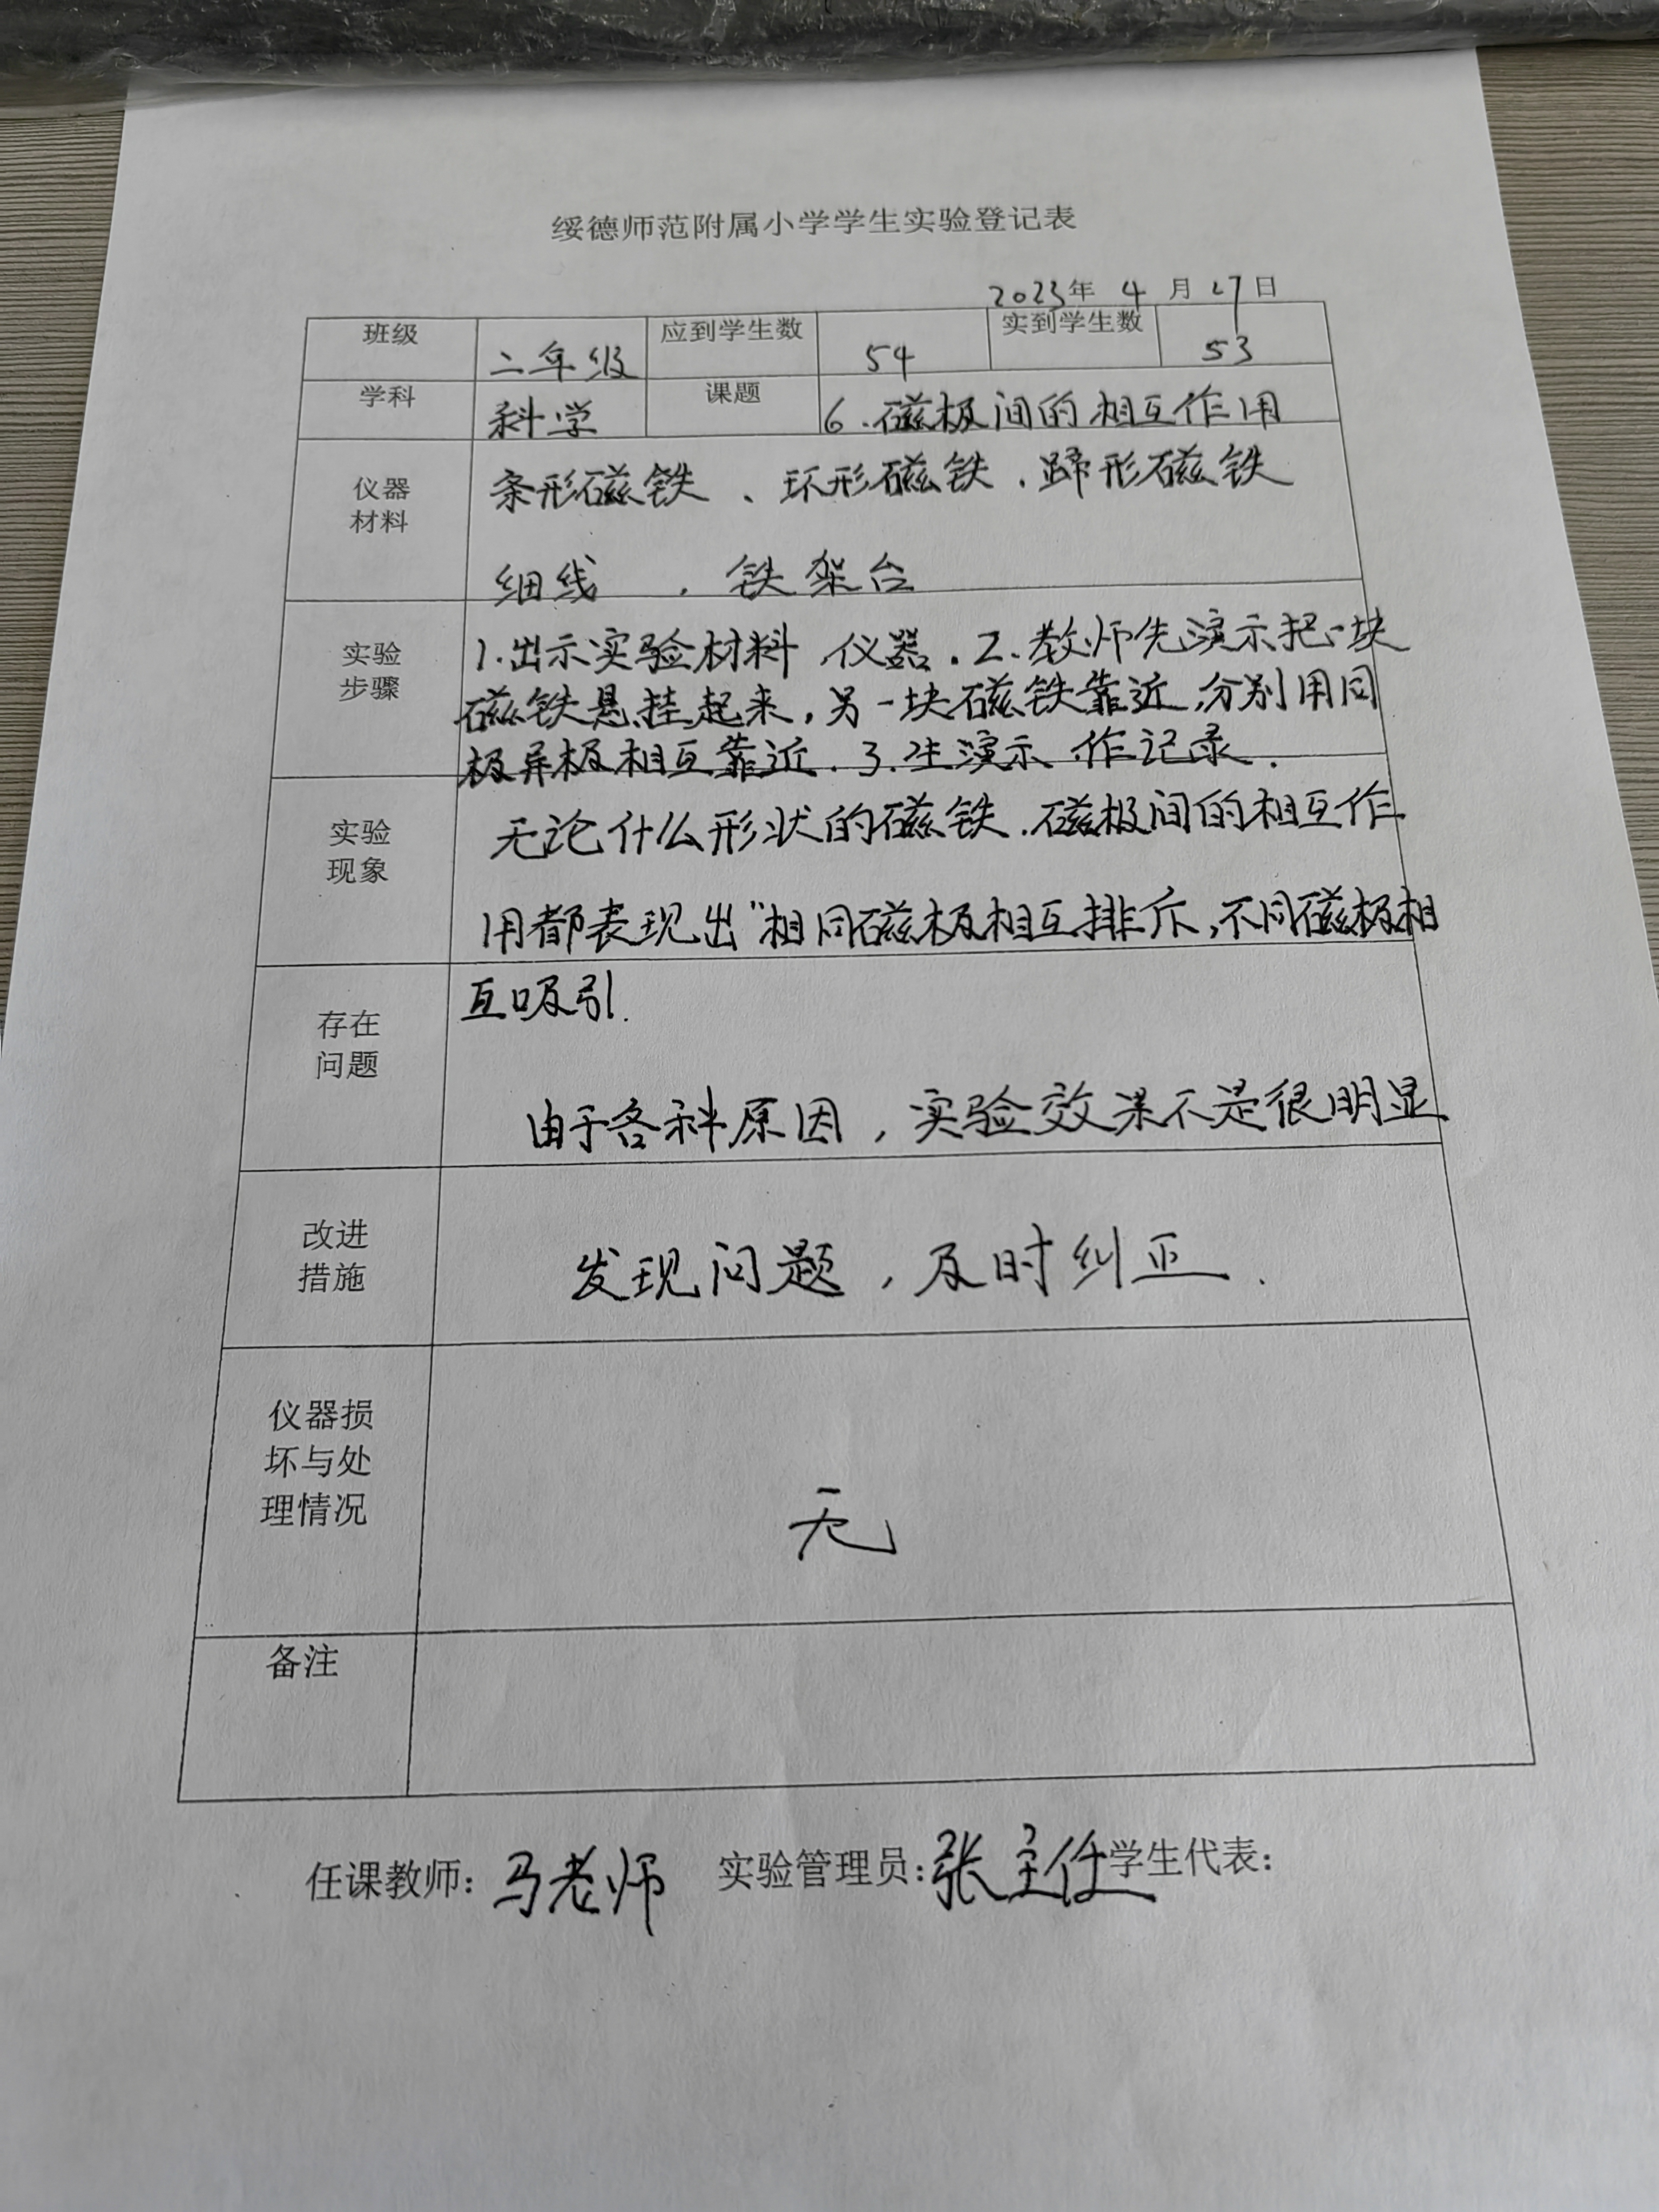 绥德师范附属小学学生实验登记表
2023年 4 月 27 日
班级 二年级 应到学生数 54 实到学生数 53
学科 科学 课题 6.磁极间的相互作用
仪器
材料
条形磁铁、环形磁铁、蹄形磁铁
细线、铁架台
实验
步骤
1.出示实验材料、仪器.2.教师先演示把一块
磁铁悬挂起来,另一块磁铁靠近,分别用同
极异极相互靠近.3.生演示、作记录.
实验
现象
无论什么形状的磁铁.磁极间的相互作
用都表现出"相同磁极相互排斥,不同磁极相
互吸引.
存在
问题
由于各种原因,实验效果不是很明显
改进
措施
发现问题,及时纠正.
仪器损
坏与处
理情况
无
备注
任课教师:马老师 实验管理员:张主任 学生代表: